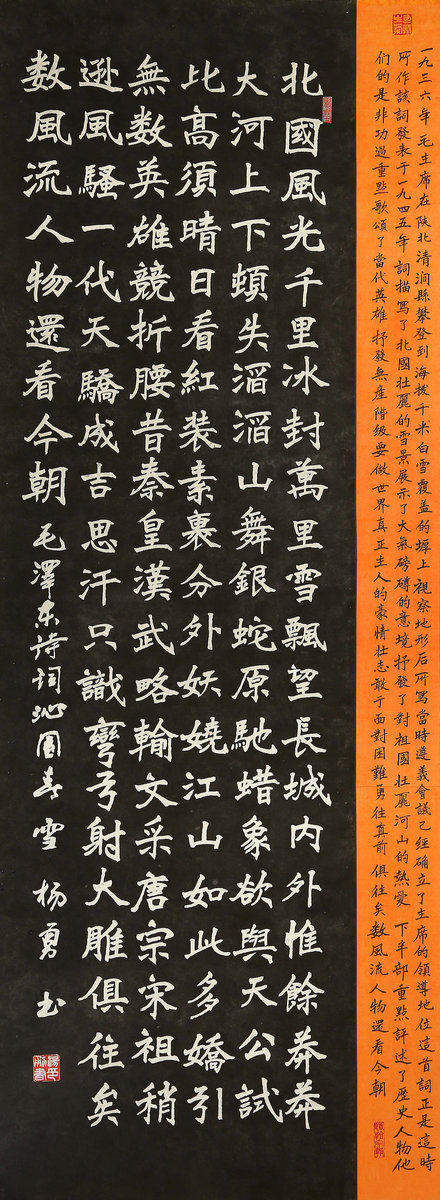 一九三六年毛主席在陝北清澗縣攀登到海拔千米白雪覆盖的塬上視察地形后所寫當時遵義會議已經确立了主席的領導地位這首詞正是這時
所作該詞發表于一九四五年詞描寫了北國壯麗的雪景展示了大氣磅礴的意境抒發了對祖國壯麗河山的熱愛 下半部重點評述了歷史人物他
们的是非功過重點歌頌了當代英雄抒發無産階級要做世界真正主人的豪情壯志敢于面對困難勇往真前俱往矣数風流人物還看今朝
北國風光千里冰封萬里雪飄望長城内外惟餘莽莽
大河上下頓失滔滔山舞銀蛇原馳蜡象欲與天公試
比高須晴日看紅装素裹分外妖嬈江山如此多嬌引
無数英雄競折腰昔秦皇漢武略輸文采唐宗宋祖稍
遜風騷一代天驕成吉思汗只識彎弓射大雕俱往矣
数風流人物還看今朝 毛澤东诗词沁園春雪 杨勇书